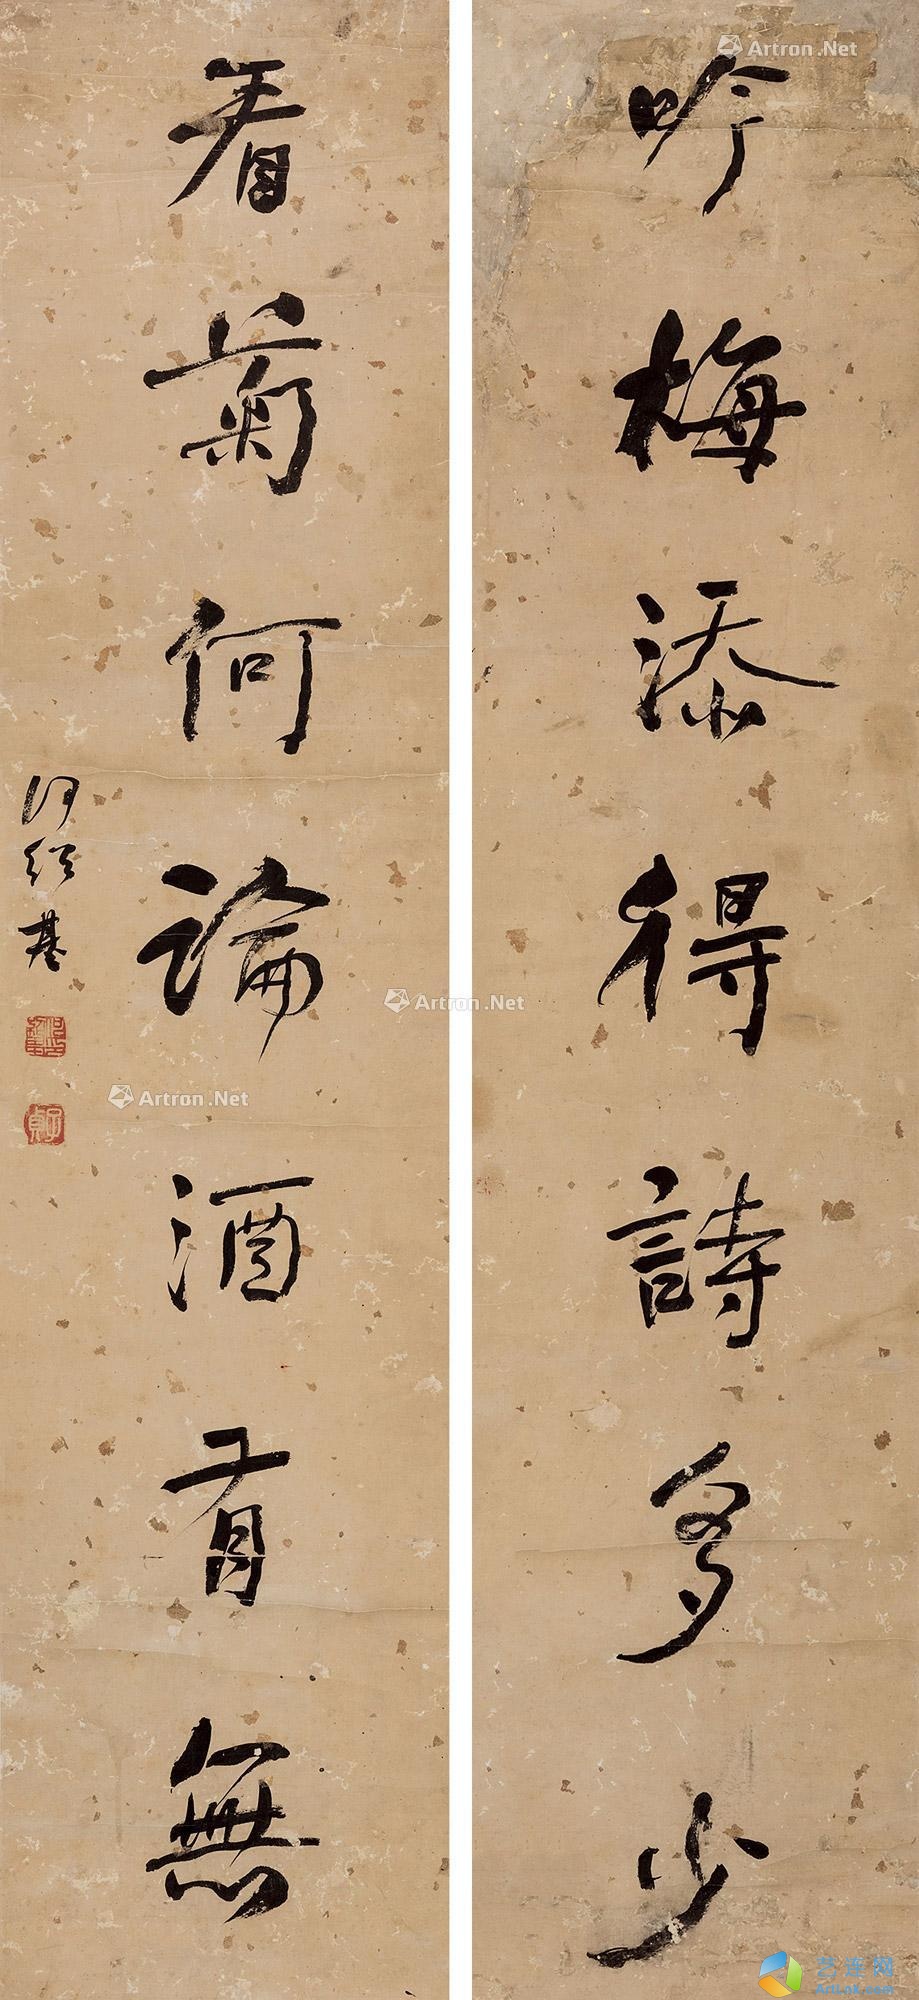 吟梅添得詩多少
看菊何論酒有無
何紹基
子貞
Artron.Net
Artron.Net
Artron.Net
艺连网
ArtLnk.com